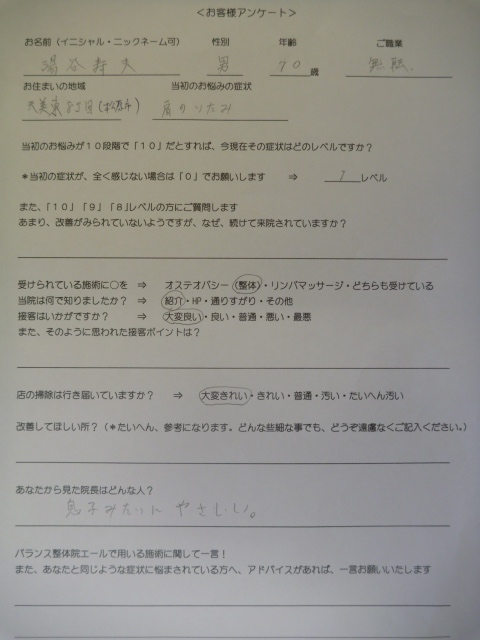 <お客様アンケート>
お名前(イニシャル・ニックネーム可) 性別 年齢 ご職業
湯谷寿夫 男 70歳 無職.
お住まいの地域 当初のお悩みの症状
天美東8丁目(松原市) 肩のいたみ
当初のお悩みが10段階で「10」だとすれば、今現在その症状はどのレベルですか?
*当初の症状が、全く感じない場合は「0」でお願いします ⇒ 7レベル
また、「10」「9」「8」レベルの方にご質問します
あまり、改善がみられていないようですが、なぜ、続けて来院されていますか?
受けられている施術に○を ⇒ オステオパシー・整体・リンパマッサージ・どちらも受けている
当院は何で知りましたか? ⇒ 紹介・HP・通りすがり・その他
接客はいかがですか? ⇒ 大変良い・良い・普通・悪い・最悪
また、そのように思われた接客ポイントは?
店の掃除は行き届いていますか? ⇒ 大変きれい・きれい・普通・汚い・たいへん汚い
改善してほしい所?(*たいへん、参考になります。どんな些細な事でも、どうぞ遠慮なくご記入ください。)
あなたから見た院長はどんな人?
息子みたいにやさしい。
バランス整体院エールで用いる施術に関して一言!
また、あなたと同じような症状に悩まされている方へ、アドバイスがあれば、一言お願いいたします